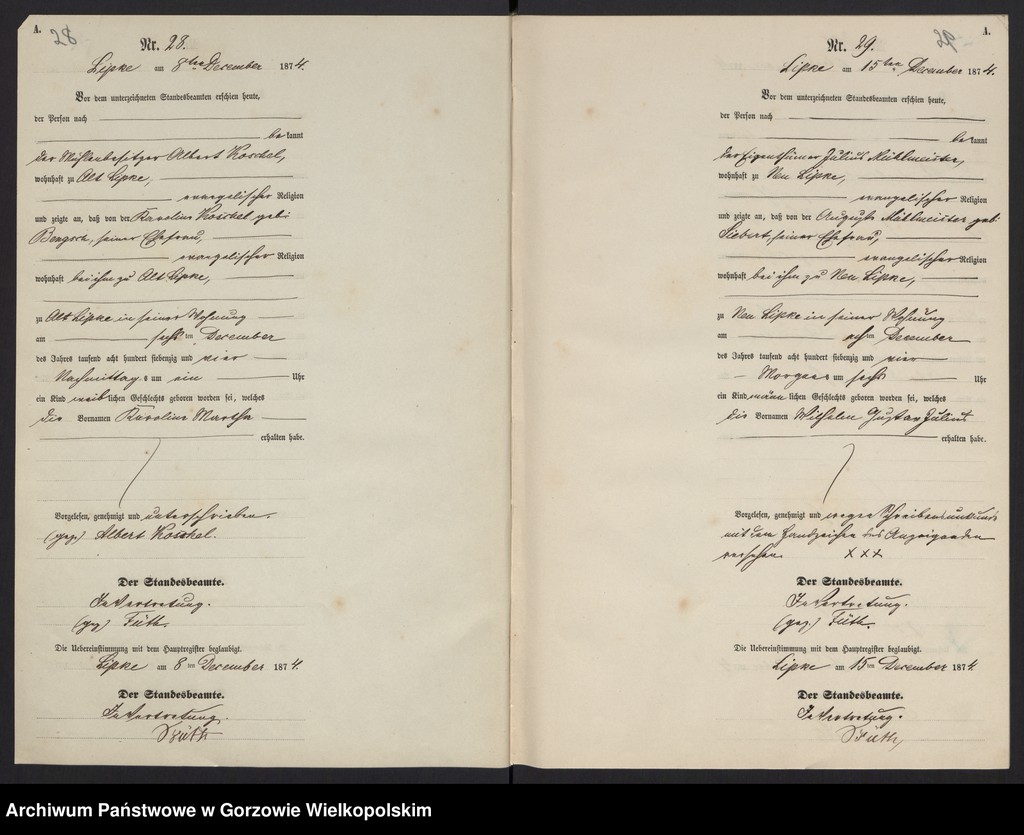 A.
28
Nr. 28.
Lipke am 8ten December 1874.
Vor dem unterzeichneten Standesbeamten erschien heute,
der Person nach
bekannt
der Mühlenbesitzer Albert Koschel,
wohnhaft zu Alt Lipke,
evangelischer Religion
und zeigte an, daß von der Karoline Koschel geb:
Bengsch, seiner Ehefrau,
evangelischer Religion
wohnhaft bei ihm zu Alt Lipke,
zu Alt Lipke in seiner Wohnung
am sechsten December
des Jahres tausend acht hundert siebenzig und vier
Nachmittags um ein Uhr
ein Kind weiblichen Geschlechts geboren worden sei, welches
die Vornamen Karoline Martha
erhalten habe.
Vorgelesen, genehmigt und unterschrieben.
(gez.) Albert Koschel.
Der Standesbeamte.
In Vertretung.
(gez) Füth.
Die Uebereinstimmung mit dem Hauptregister beglaubigt.
Lipke am 8ten December 1874.
Der Standesbeamte.
In Vertretung.
Füth
A.
29
Nr. 29.
Lipke am 15ten December 1874.
Vor dem unterzeichneten Standesbeamten erschien heute,
der Person nach
bekannt
der Eigenthümer Julius Mühlmeister,
wohnhaft zu Neu Lipke,
evangelischer Religion
und zeigte an, daß von der Auguste Mühlmeister geb:
Siebert, seiner Ehefrau,
evangelischer Religion
wohnhaft bei ihm zu Neu Lipke,
zu Neu Lipke in seiner Wohnung
am achten December
des Jahres tausend acht hundert siebenzig und vier
Morgens um sechs Uhr
ein Kind männlichen Geschlechts geboren worden sei, welches
die Vornamen Wilhelm Gustav Julius
erhalten habe.
Vorgelesen, genehmigt und wegen Schreibensunkunde
mit dem Handzeichen des Anzeigenden
versehen. XXX
Der Standesbeamte.
In Vertretung.
(gez.) Füth.
Die Uebereinstimmung mit dem Hauptregister beglaubigt.
Lipke am 15ten December 1874.
Der Standesbeamte.
In Vertretung.
Füth,
Archiwum Państwowe w Gorzowie Wielkopolskim